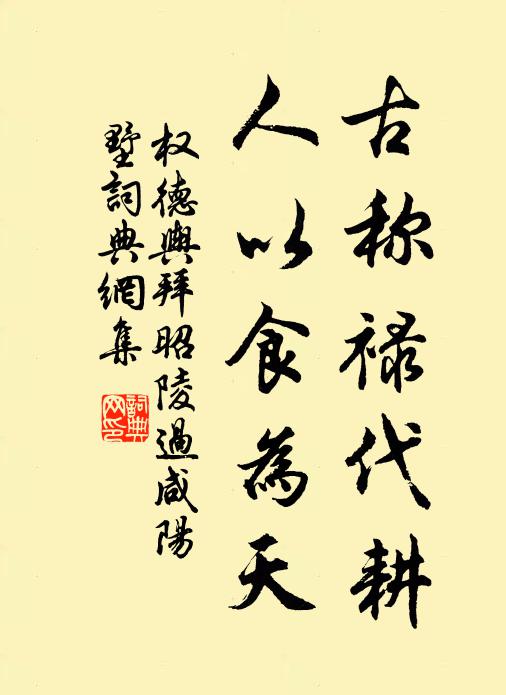 古称禄代耕
人以食為天
权德輿拜昭陵過咸陽
墅詞典網集
詞典
网印